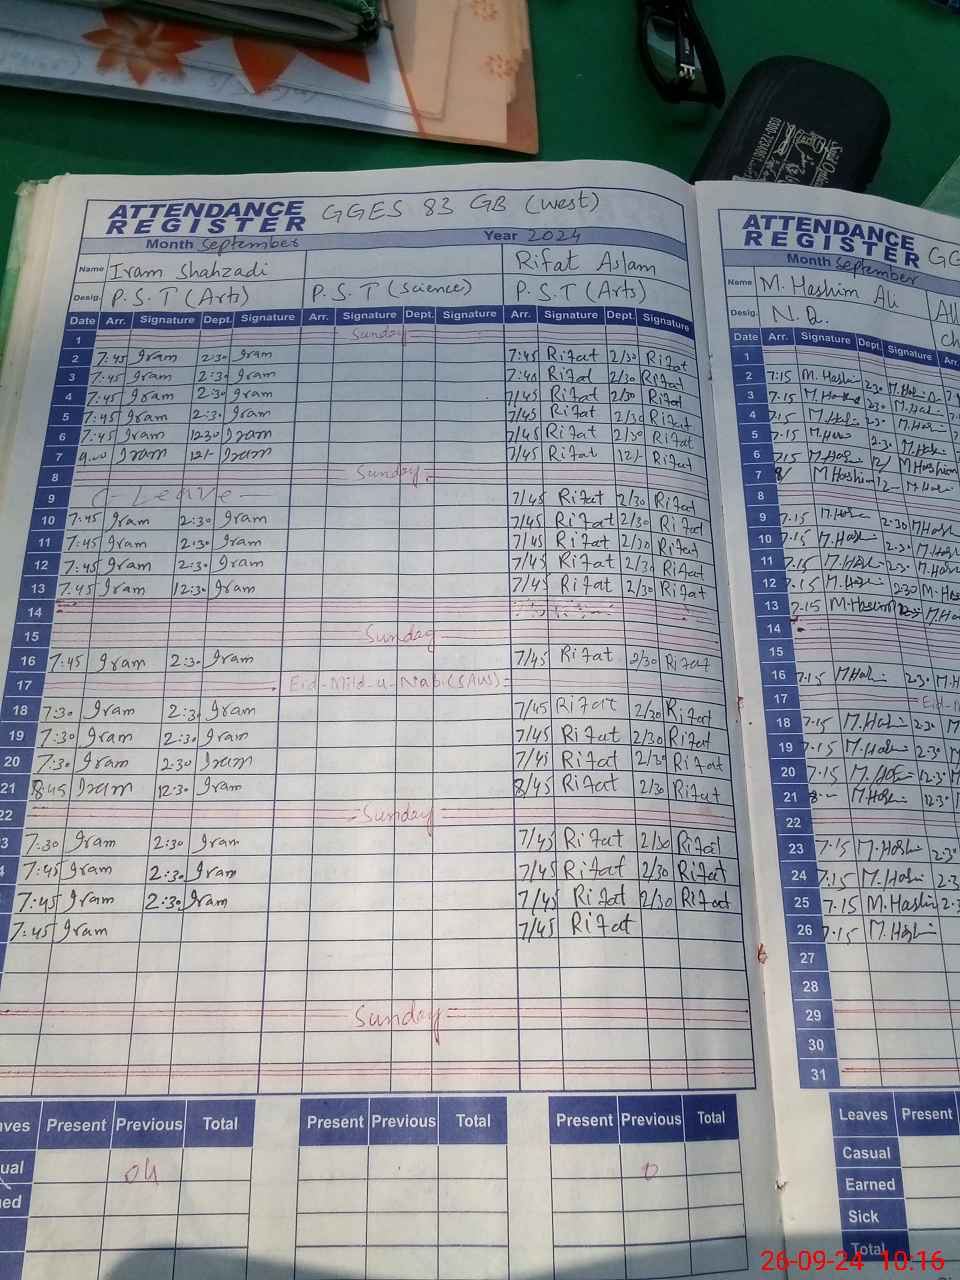 ATTENDANCE REGISTER GGES 83 GB (west)
Month September Year 2024
Name Iram Shahzadi Rifat Aslam
Desig. P.S.T (Arts) P.S.T (Science) P.S.T (Arts)
Date Arr. Signature Dept. Signature Arr. Signature Dept. Signature Arr. Signature Dept. Signature
1 Sunday
2 7:45 Iram 2:30 Iram 7:45 Rifat 2/30 Rifat
3 7:45 Iram 2:30 Iram 7:45 Rifat 2/30 Rifat
4 7:45 Iram 2:30 Iram 7/45 Rifat 2/30 Rifat
5 7:45 Iram 2:30 Iram 7/45 Rifat 2/30 Rifat
6 7:45 Iram 12:30 Iram 7/45 Rifat 2/30 Rifat
7 9.00 Iram 12/- Iram 7/45 Rifat 12/- Rifat
8 Sunday
9 C-Leave 7/45 Rifat 2/30 Rifat
10 7:45 Iram 2:30 Iram 7/45 Rifat 2/30 Rifat
11 7:45 Iram 2:30 Iram 7/45 Rifat 2/30 Rifat
12 7:45 Iram 2:30 Iram 7/45 Rifat 2/30 Rifat
13 7:45 Iram 12:30 Iram 7/45 Rifat 2/30 Rifat
14
15 Sunday
16 7:45 Iram 2:30 Iram 7/45 Rifat 2/30 Rifat
17 Eid-Mild-u-Nabi (SAW)
18 7:30 Iram 2:30 Iram 7/45 Rifat 2/30 Rifat
19 7:30 Iram 2:30 Iram 7/45 Rifat 2/30 Rifat
20 7:30 Iram 2:30 Iram 7/45 Rifat 2/30 Rifat
21 8:45 Iram 12:30 Iram 8/45 Rifat 2/30 Rifat
22 Sunday
3 7:30 Iram 2:30 Iram 7/45 Rifat 2/30 Rifat
7:45 Iram 2:30 Iram 7/45 Rifat 2/30 Rifat
7:45 Iram 2:30 Iram 7/45 Rifat 2/30 Rifat
7:45 Iram 7/45 Rifat
Sunday
ves Present Previous Total Present Previous Total Present Previous Total
ual 04 0
ned
ATTENDANCE REGISTER
Month September
Name M. Hashim Ali
Desig. N.Q.
Date Arr. Signature Dept. Signature Arr.
1
2 7:15 M. Hashi 2:30
3 7.15 2.30
4 7.15 2.30
5 7.15 2.30
6 7.15 12/ M Hashim
7 8/ M Hashim 12
8
9 7.15 2:30
10 7.15 2:30
11 7.15 2:30
12 7.15 2:30
13 7.15 M.Hashim
14
15
16 7.15 2:30
17 Eid-
18 7.15 2:30
19 7.15 2:30
20 7.15 12:30
21 8 12:30
22
23 7.15 2:30
24 7:15 2:3
25 7.15 M.Hashim 2:3
26 7.15
27
28
29
30
31
Leaves Present
Casual
Earned
Sick
Total
26-09-24 10:16